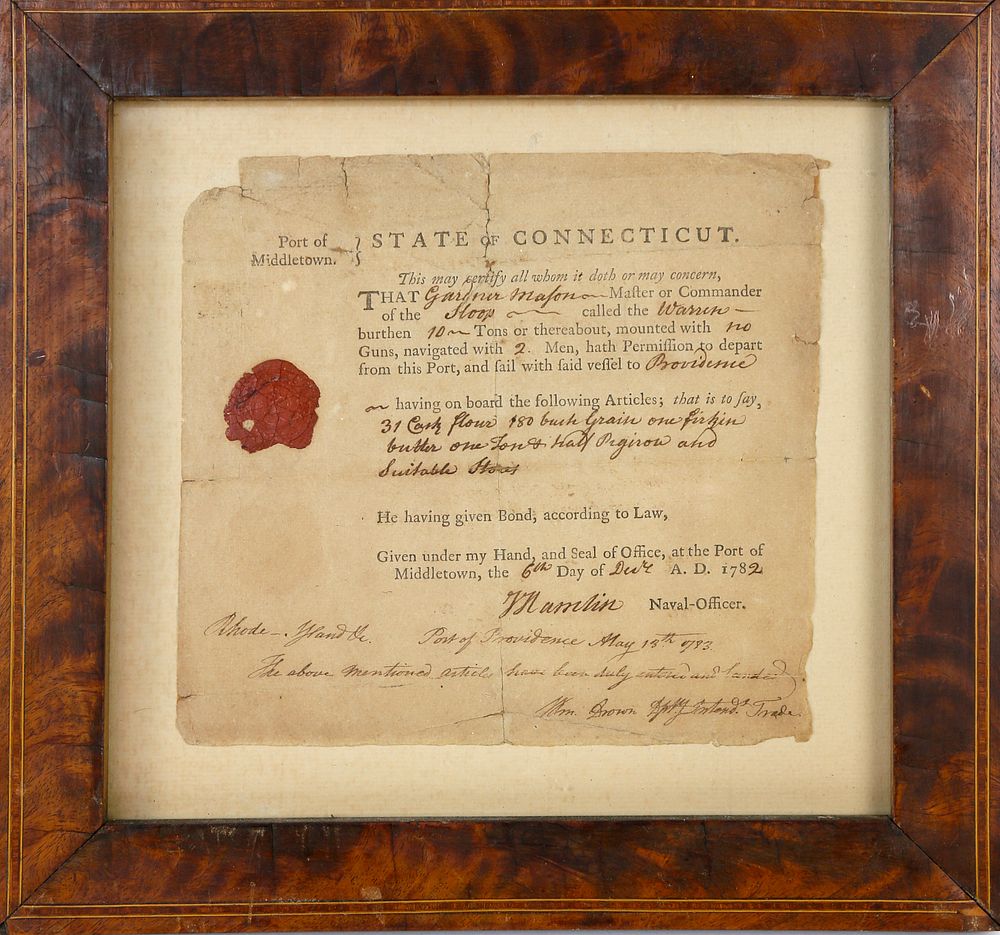 Port of
Middletown.
} STATE OF CONNECTICUT.
This may certify all whom it doth or may concern,
THAT Gardner Mason Maſter or Commander
of the Sloop called the Warren
burthen 10 Tons or thereabout, mounted with no
Guns, navigated with 2. Men, hath Permiſſion to depart
from this Port, and ſail with ſaid veſſel to Providence
having on board the following Articles; that is to ſay,
31 Cask flour 180 bush Grain one firkin
butter one Ton & Half Pigiron and
Suitable Stores
He having given Bond, according to Law,
Given under my Hand, and Seal of Office, at the Port of
Middletown, the 6th Day of Decr A. D. 1782
Hamlin Naval-Officer.
Rhode-Island &c. Port of Providence May 15th 1783
The above mentioned articles have been duly entered and landed
Wm. Brown Dpty Intendt Trade